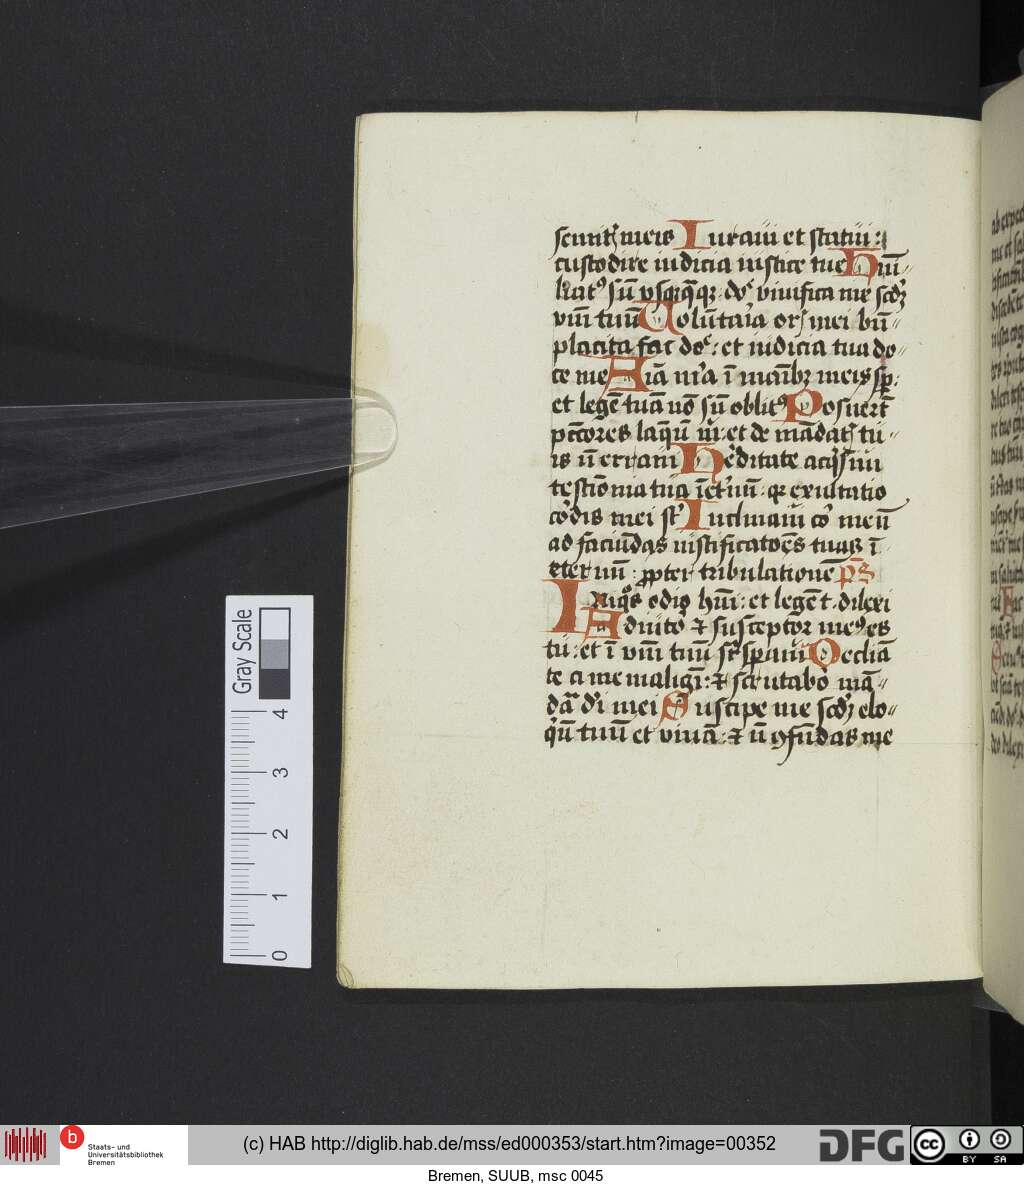 semit meis Iuraui et statui :
custodire iudicia iusticie tue Hūi
liat⁹ sū usqꝗqꝫ dn̄e viuifica me scd̄ꝫ
vbū tuū Uolūtaria oris mei bn̄
placita fac dn̄e : et iudicia tua do
ce me Aīa m̄a ī manibꝫ meis sp̄ :
et legē tuā nō sū oblit⁹ Posuerūt
pctōres laqueū m̄ : et de mādatis tu
is nō erraui Hereditate acquisiui
testimonia tua ī et̄nū : qꝛ exultatio
cordis mei st̄ Inclinaui cor meū
ad faciendas iustificatōes tuas ī
eternum : propter tributionē p̄s
Iniquos odio hūi : et legē t. dilexi
Adiutor ⁊ susceptor me⁹ es
tu : et ī vbū tuū sꝑaui Declia
te a me malignī : ⁊ scrutabor mā
data dei mei Suscipe me scd̄ꝫ elo
qūi tuū et viuā : ⁊ nō ꝯfūdas me
Gray Scale
4
3
2
1
0
b
Staats- und
Universitätsbibliothek
Bremen
(c) HAB http://diglib.hab.de/mss/ed000353/start.htm?image=00352
DFG
cc
BY SA
Bremen, SUUB, msc 0045